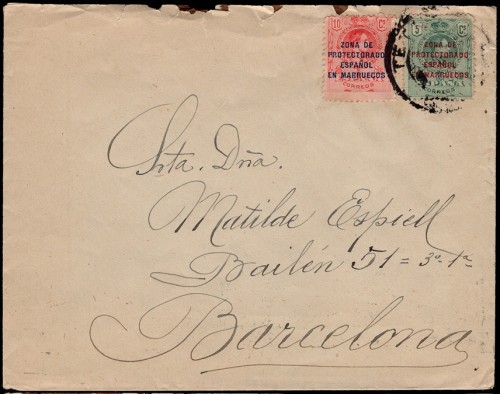 10 Cs.
ZONA DE
PROTECTORADO
ESPAÑOL
EN MARRUECOS
CORREOS
5 Cs.
ZONA DE
PROTECTORADO
ESPAÑOL
EN MARRUECOS
CORREOS
TE
Srta. Dña.
Matilde Espiell
Bailén 51 = 3º. 1ª
Barcelona